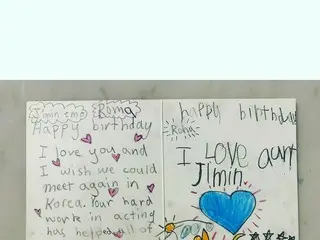 Jimin imo Roha
Happy birthday
I love you and
I wish we could
meet again in
Korea. Your hard
work in acting
has helped all of
happy birthday
Roha
I LOVE aunt
Jimin